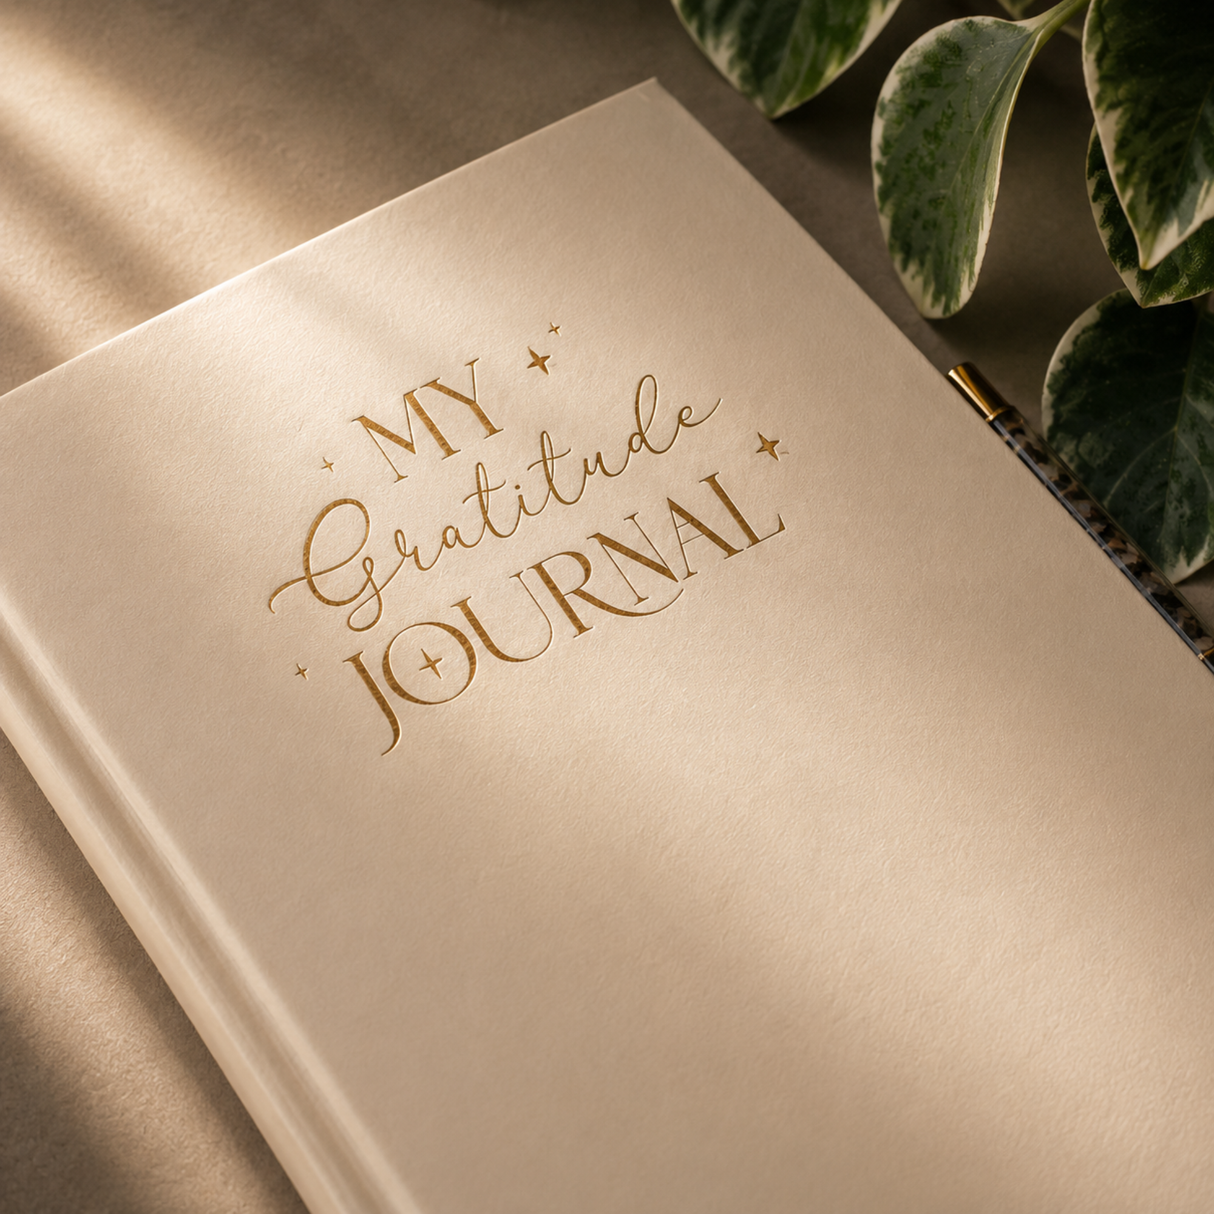 MY
Gratitude
JOURNAL